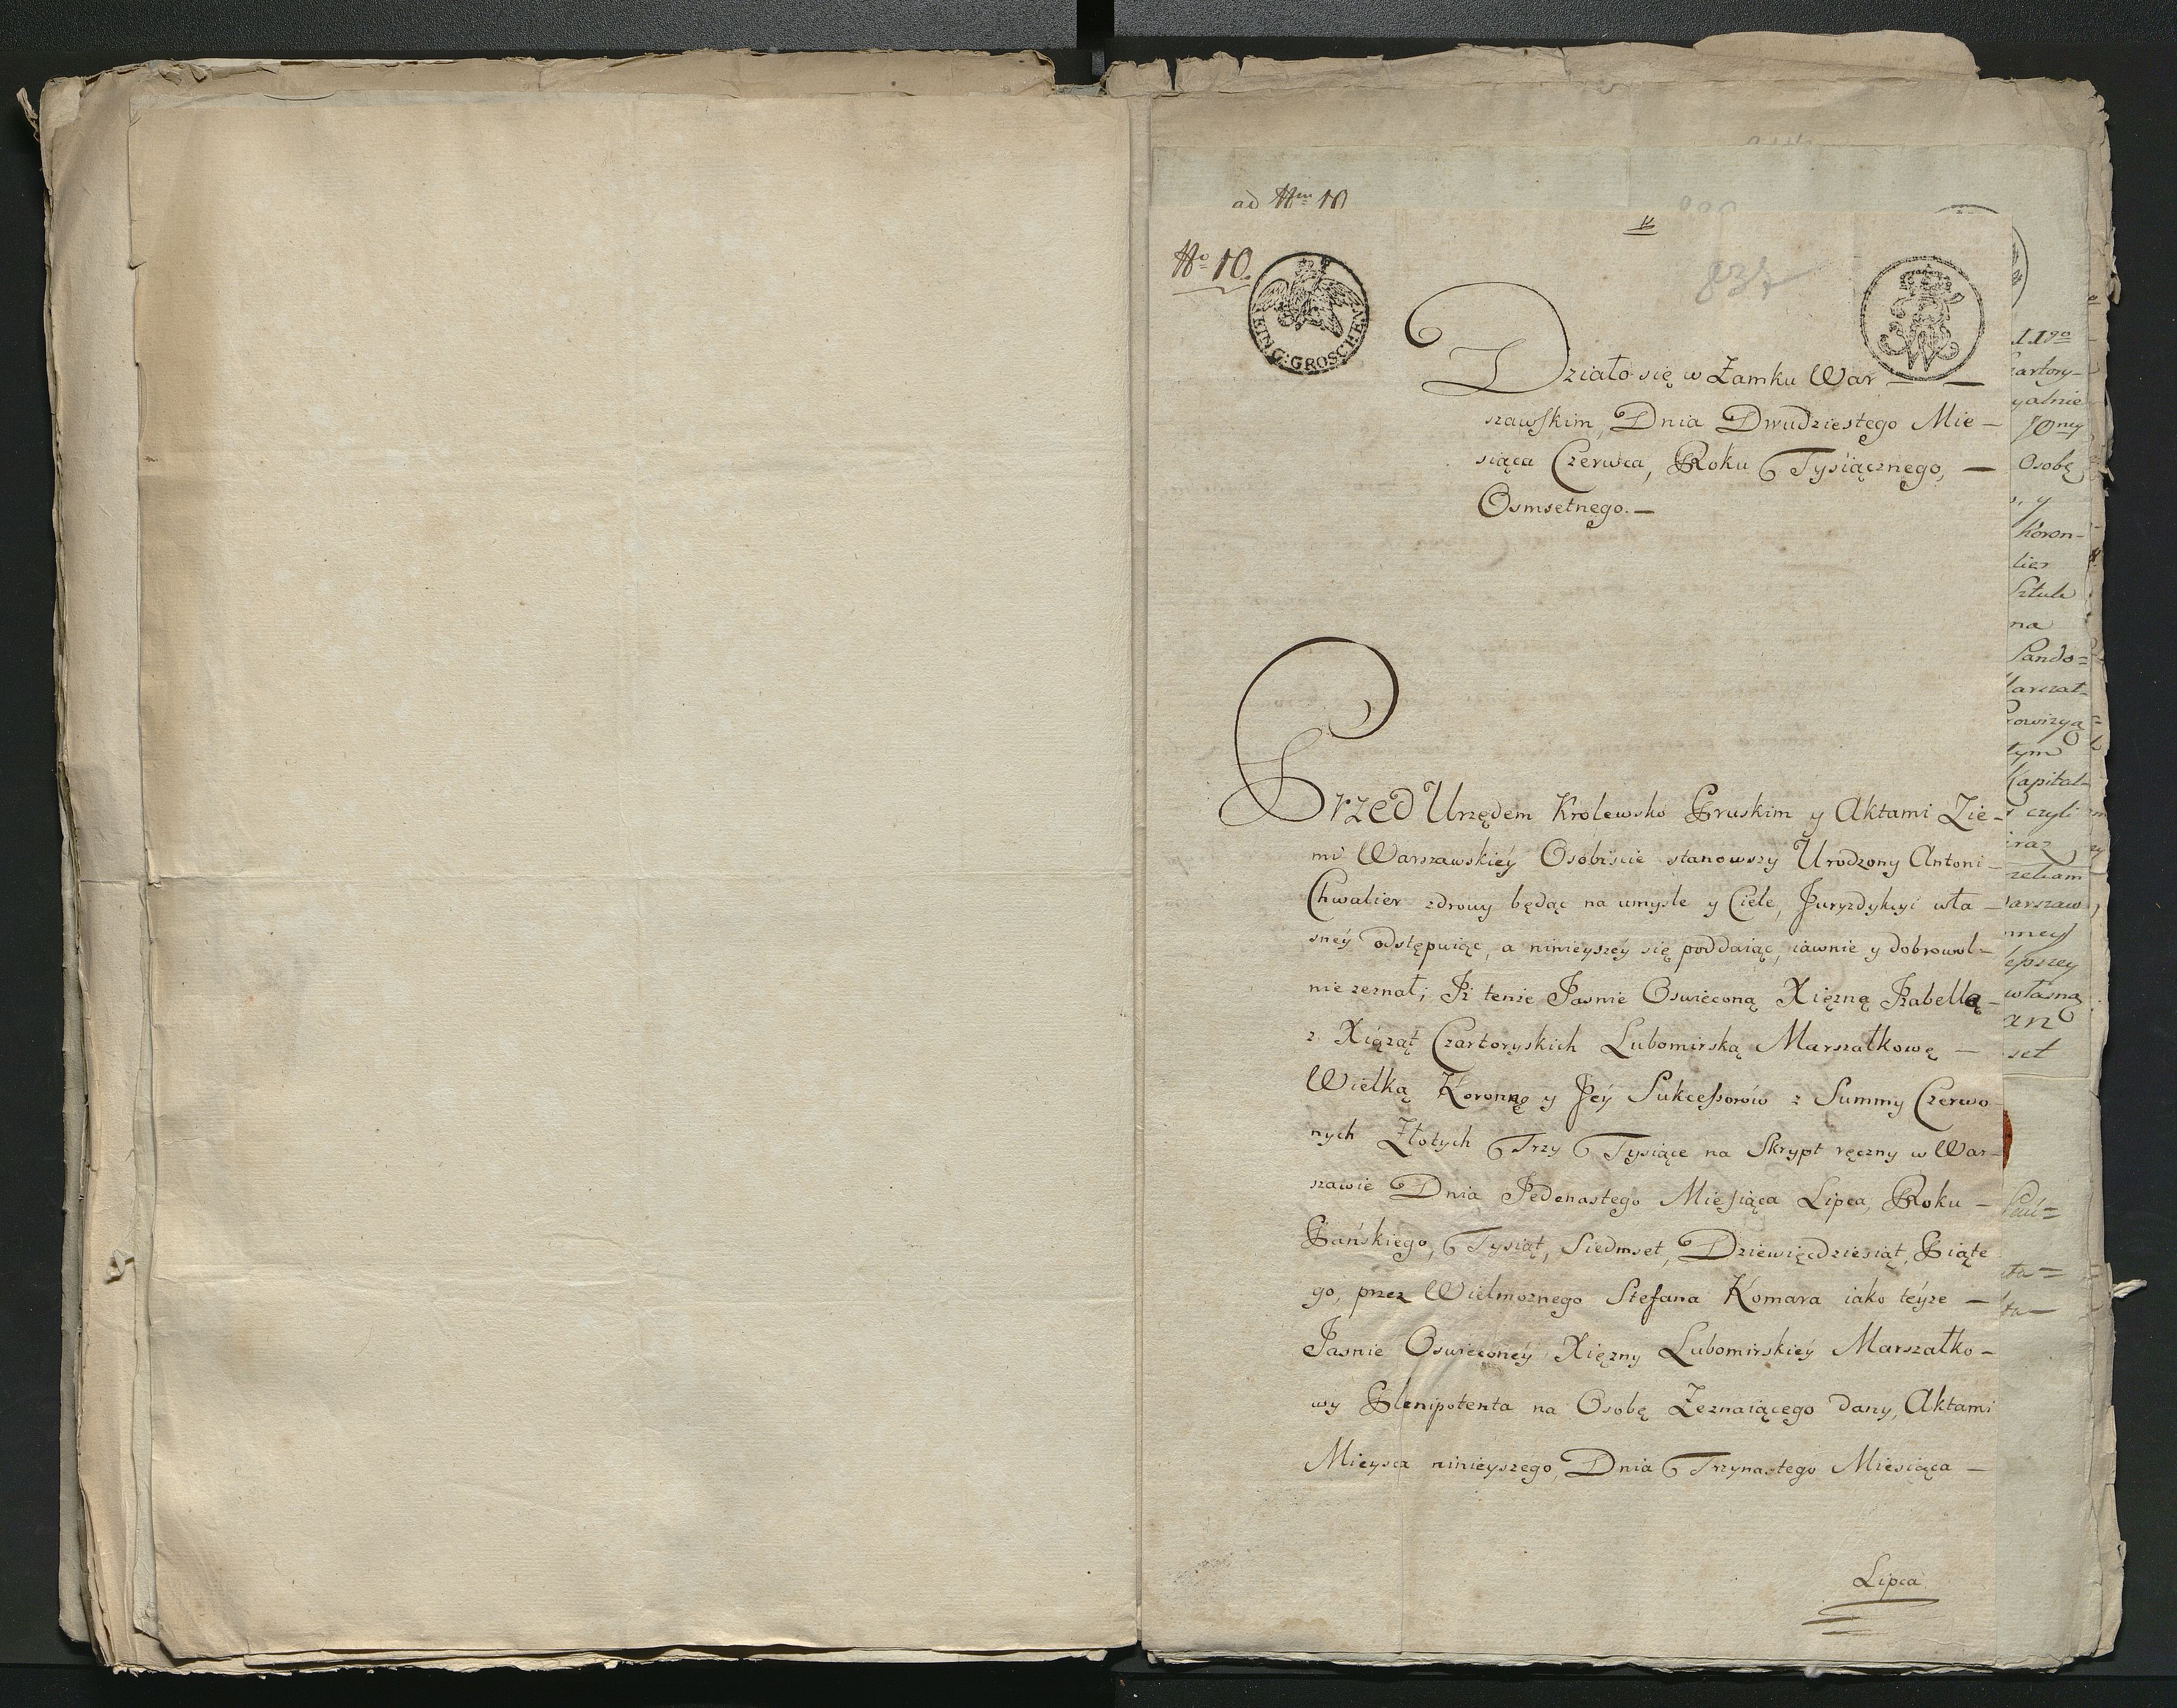 ad Nrm 10
No 10.
EIN G: GROSCHEN
Działo się w Zamku War —
szawskim, Dnia Dwudziestego Mie —
siąca Czerwca, Roku Tysiącznego, —
Osmsetnego. —
Przed Urzędem Krolewsko Pruskim y Aktami Zie-
mi Warszawskiey Osobiscie stanowszy Urodzony Antoni —
Chwalier zdrowy będąc na umysle y Ciele, Juryzdykcyi wła —
sney odstępuiąc, a ninieyszey się poddaiąc, iawnie y dobrowol —
nie zeznał; Iż tenże Jasnie Oswieconą Xięzną Izabellę —
z Xiążąt Czartoryskich Lubomirską Marszałkowę —
Wielką Koronną y Jey Sukcessorów z Summy Czerwo
nych Złotych Trzy Tysiące na Skrypt ręczny w War-
szawie Dnia Jedenastego Miesiąca Lipca, Roku —
Pańskiego, Tysiąt, Siedmset, Dziewięcdziesiąt, Piąte
go, przez Wielmoznego Stefana Komara iako teyze —
Jasnie Oswieconey Xięzny Lubomirskiey Marszałko —
wy Plenipotenta na Osobę Zeznaiącego dany, Aktami
Mieysca ninieyszego, Dnia Trzynastego Miesiąca —
Lipca